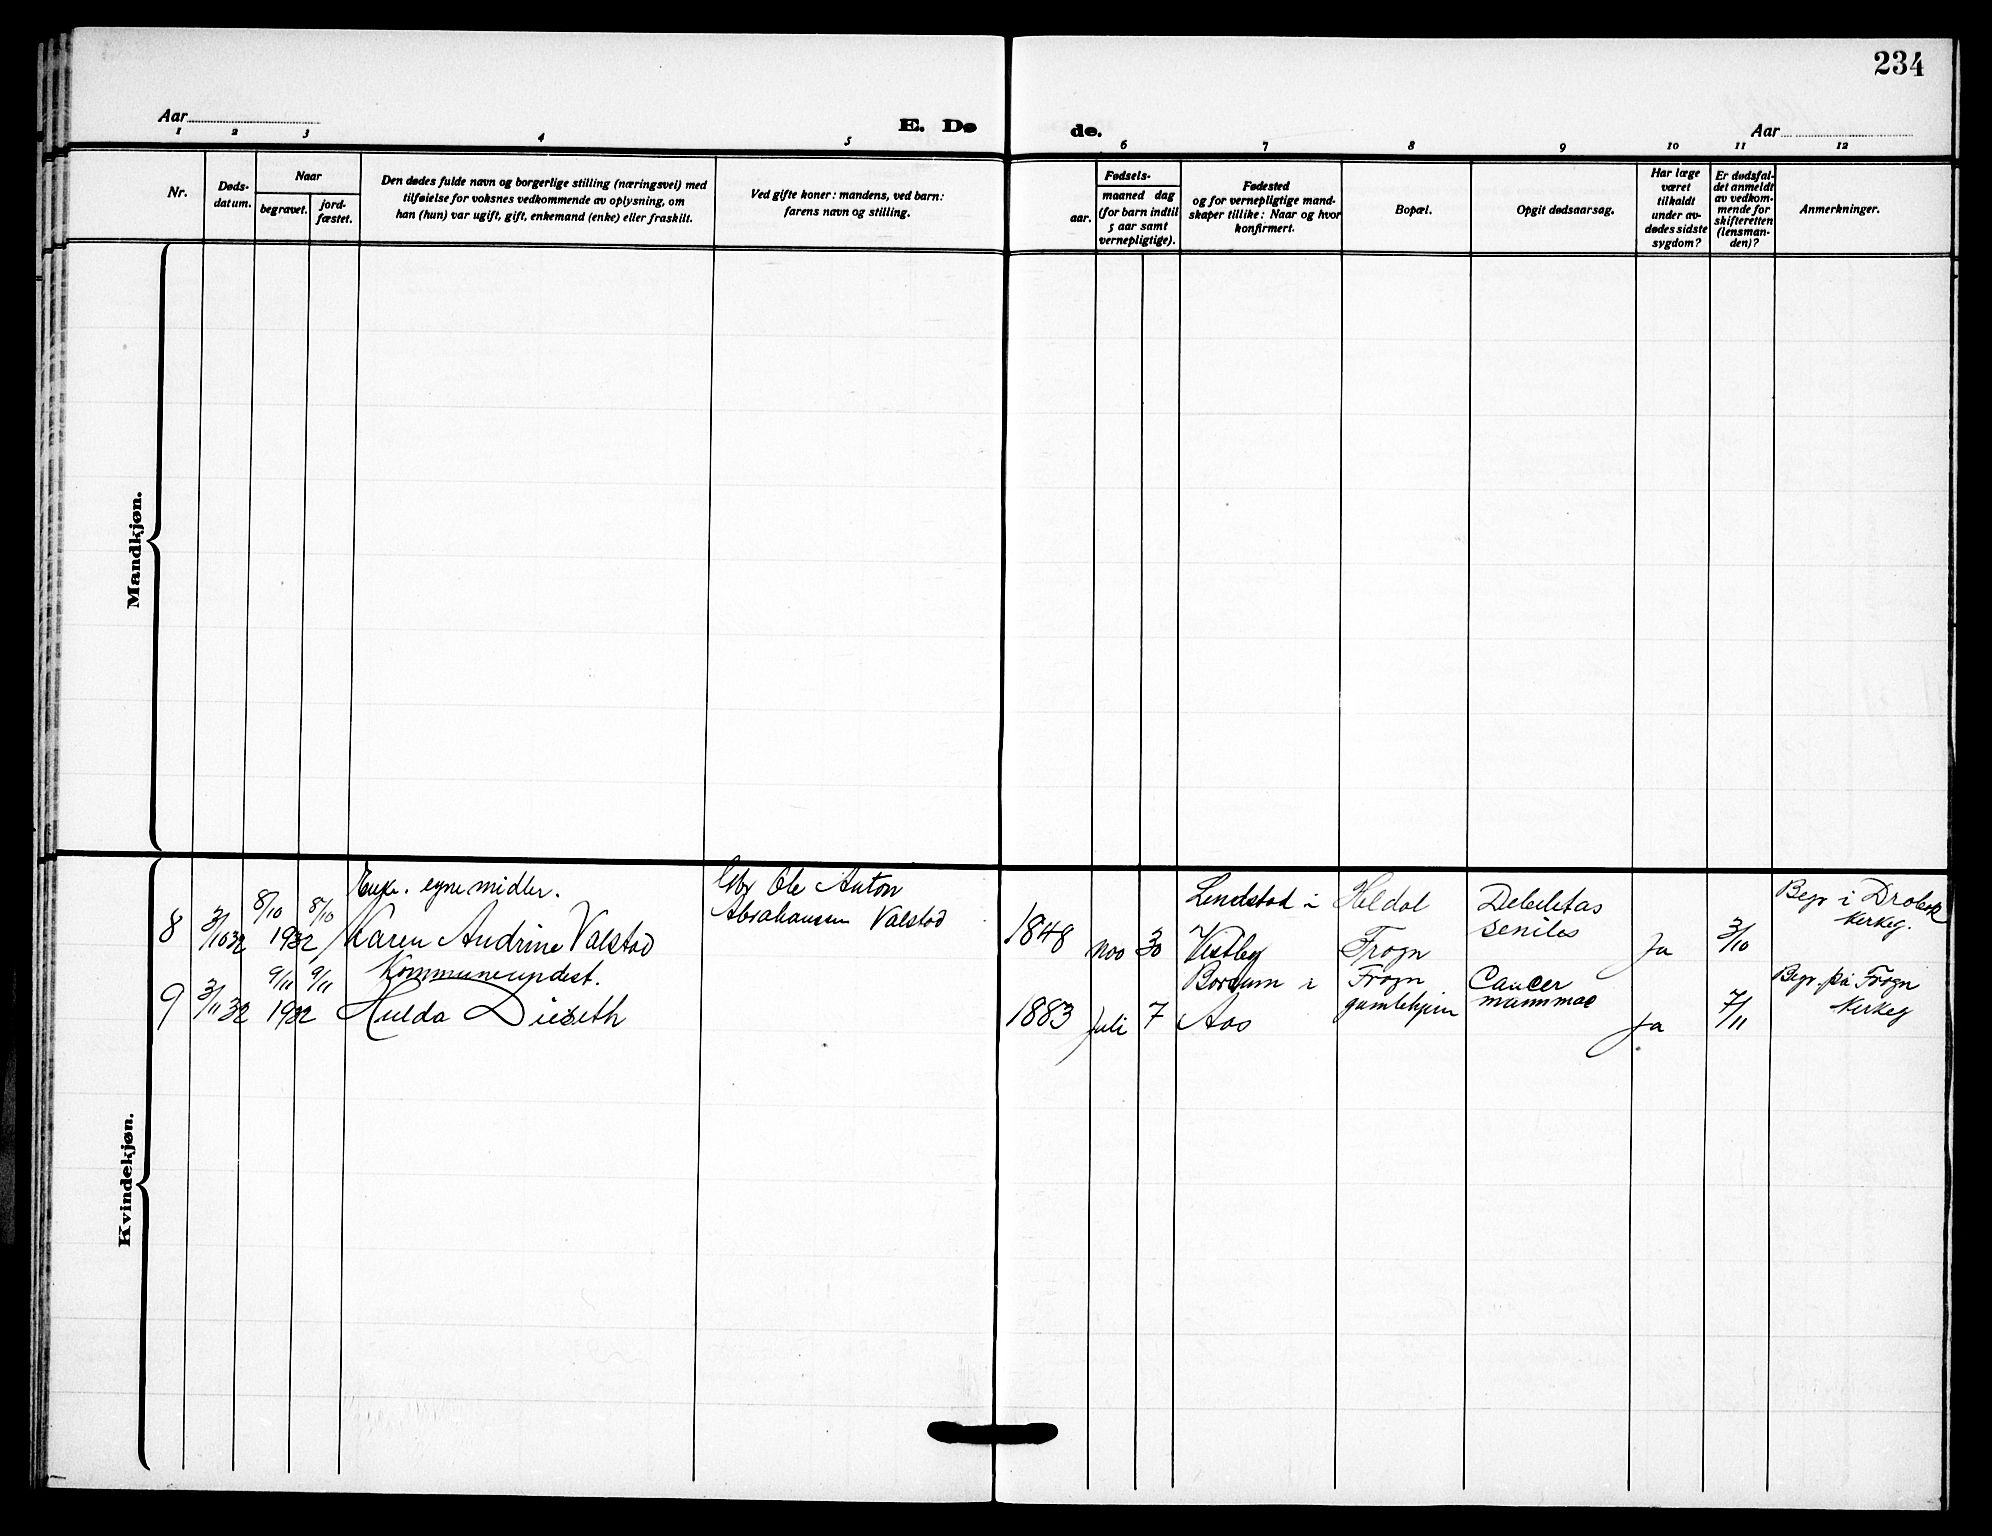 234
Aar
E. Dø
de.
Aar
1 2 3 4 5 6 7 8 9 10 11 12
Nr.
Døds-
datum.
Naar
begravet.
jord-
fæstet.
Den dødes fulde navn og borgerlige stilling (næringsvei) med
tilføielse for voksnes vedkommende av oplysning, om
han (hun) var ugift, gift, enkemand (enke) eller fraskilt.
Ved gifte koner: mandens, ved barn:
farens navn og stilling.
Fødsels-
aar.
maaned dag
(for barn indtil
5 aar samt
vernepligtige).
Fødested
og for vernepligtige mand-
skaper tillike: Naar og hvor
konfirmert.
Bopæl.
Opgit dødsaarsag.
Har læge
været
tilkaldt
under av-
dødes sidste
sygdom?
Er dødsfal-
det anmeldt
av vedkom-
mende for
skifteretten
(lensman-
den)?
Anmerkninger.
Mandkjøn.
Kvindekjøn.
Enke. egne midler. Gbr Ole Anton Lindstad i Heldal Debilitas Begr i Drøbak
8 3/10 32 8/10 8/10 1932 Karen Andrine Valstad Abrahamsen Valstad 1848 nov 30 Vestby Frogn seniles Ja 3/10 kirkeg.
9/11 9/11 Kommuneundest. i Frogn Cancer Begr. på Frogn
9 3/11 32 1932 Hulda 1883 Juli 7 Aas gamlehjem mammae Ja 7/11 kirkeg